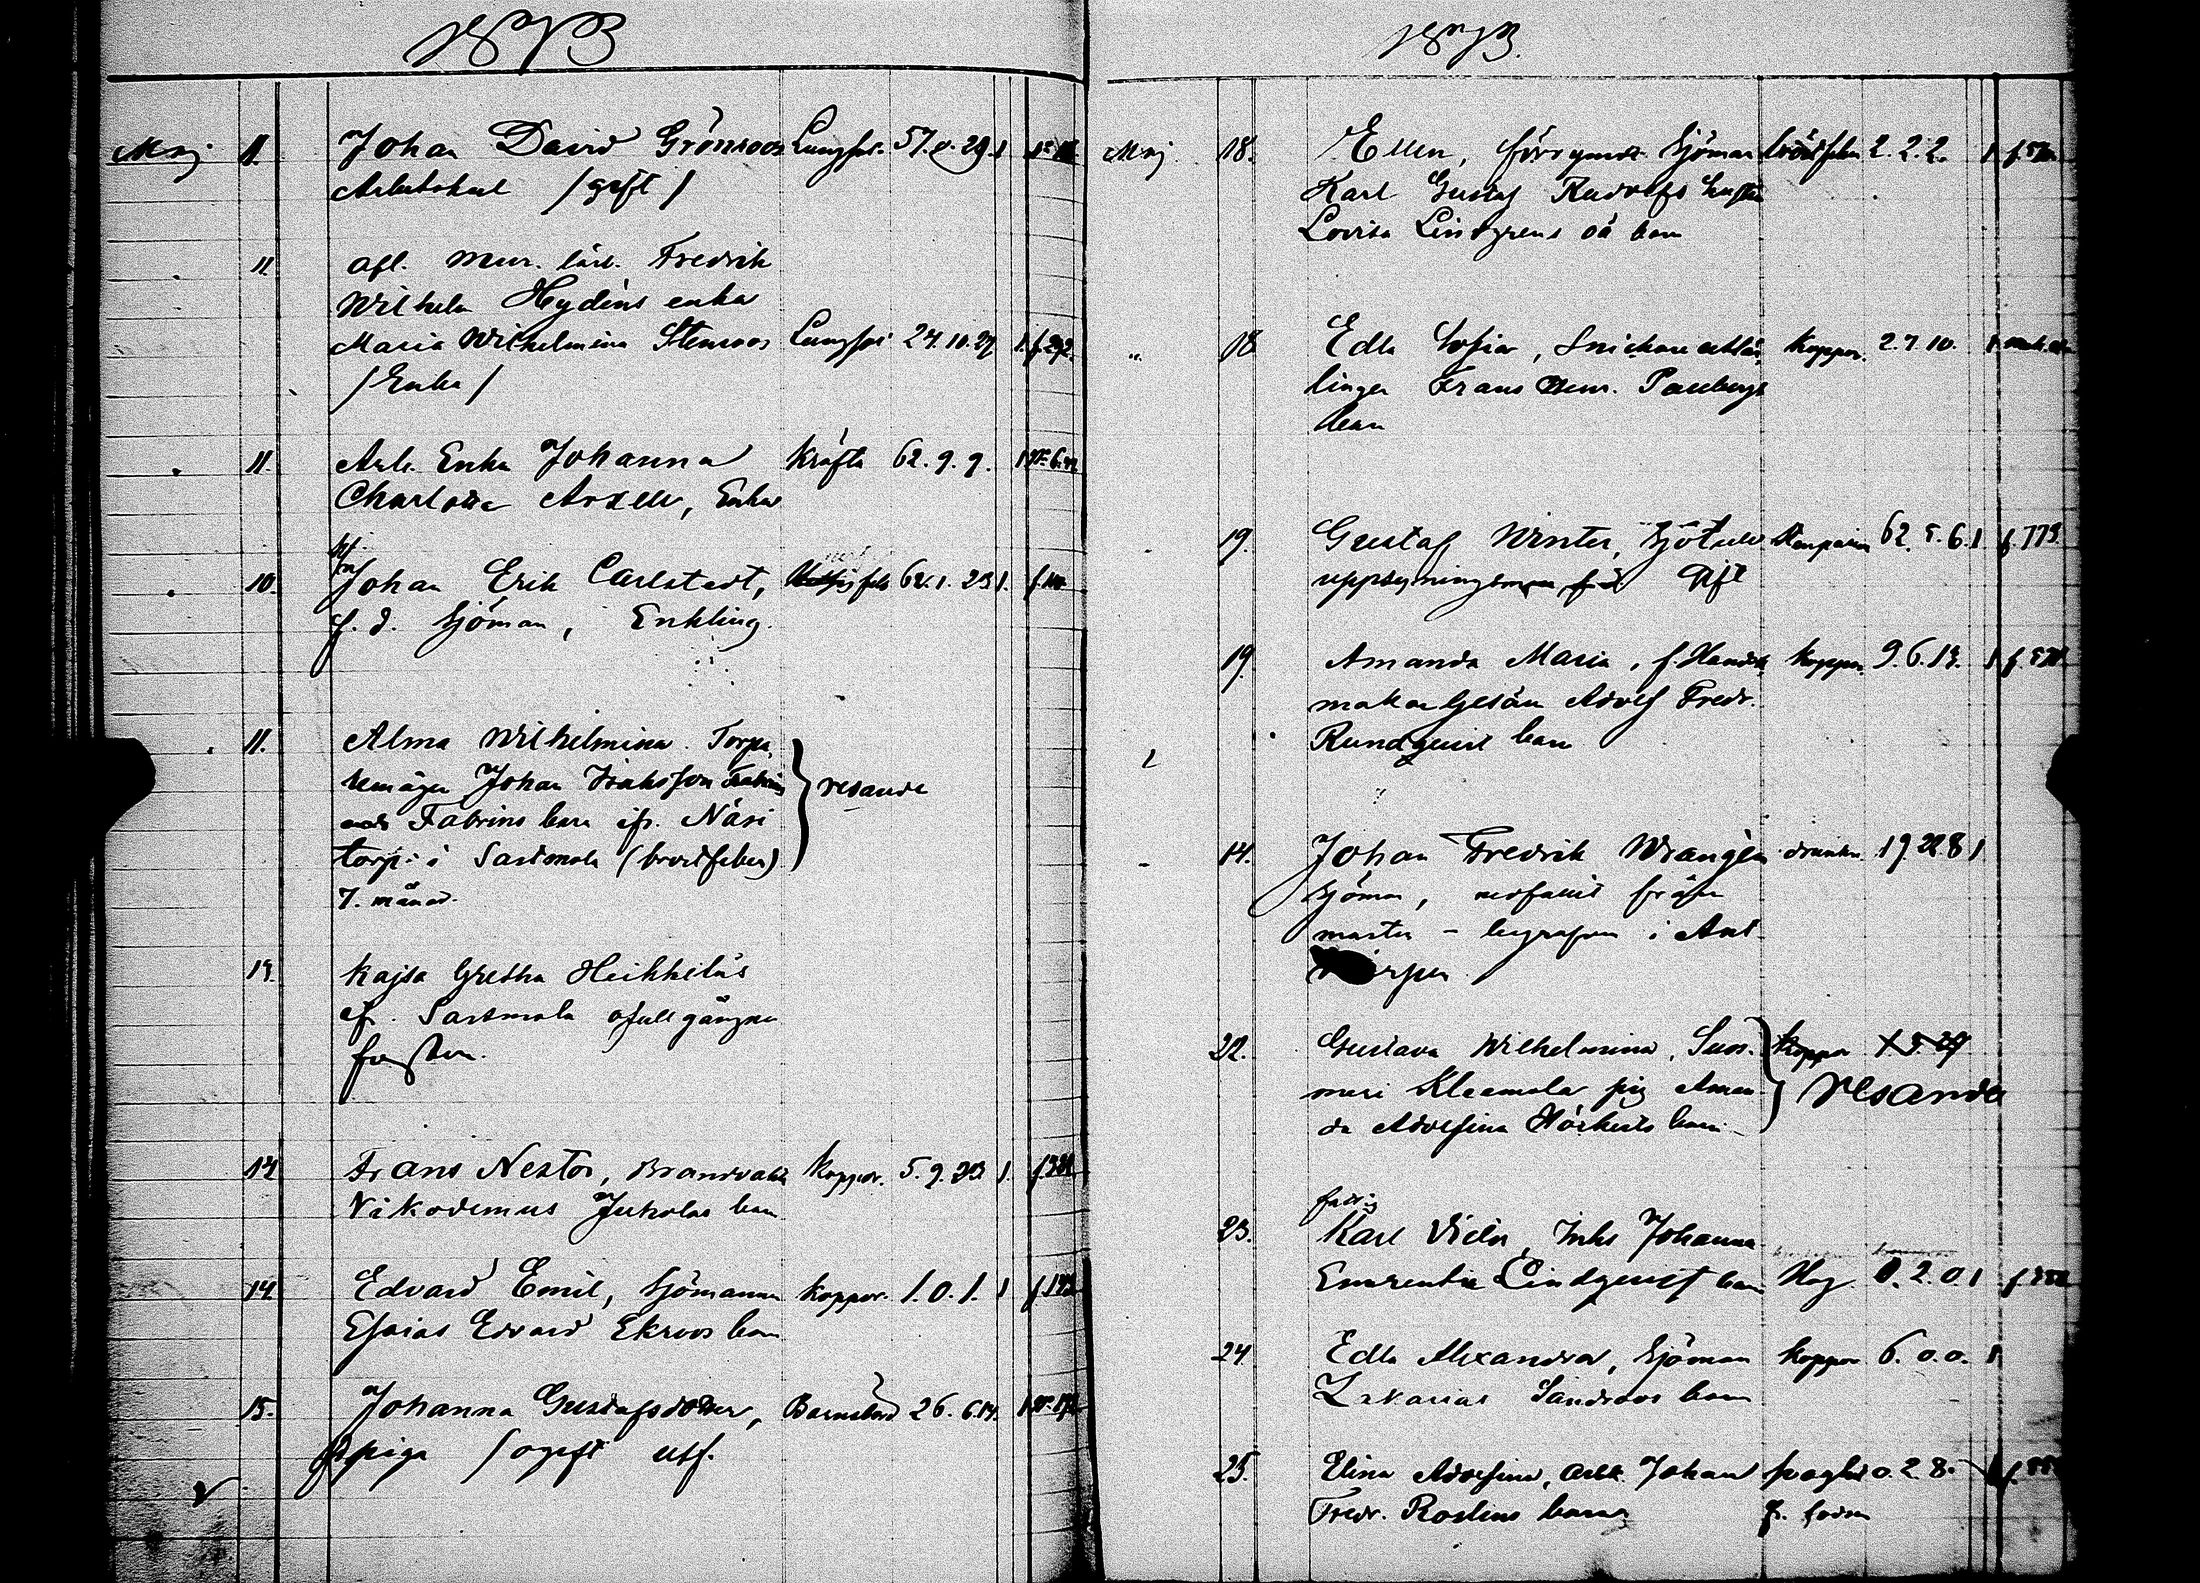 1873
Maj 11. Johan David Grönroos Lungsot. 57.0.29. 1
Arbetskarl / gift /
11. afl. Mur. lärl. Fredrik
Wilhelm Hydéns enka
Maria Wilhelmina Stenroos Lungsot 24.10.27 1. f.292
/ Enka /
11. Arb. Enka Johanna Kräfta 62.9.9. 1
Charlotta Axell, Enka
10. Johan Erik Carlstedt, 62.1.23 1.
f. d. Sjöman, Enkling.
11. Alma Wilhelmina. Torpa
Johan
Fabrins barn ifr. Näsi resande
torp i Sastmola (bröstfeber)
7. månad.
13. Kajsa Gretha Heikkiläs
fr. Sastmola ofullgångna
foster.
14 Frans Nestor, Brandvakt Koppor. 5.9.23 1.
Nikodemus Jukolas barn
14. Edvard Emil, Sjömannen Koppor. 1.0.1. 1
Esaias Edvard Ekroos barn
15. Johanna Gustafsdotter, Barnsbörd 26.6.14. 1
piga / ogift
1873.
Maj 18. Ellen, förrymda Sjöman Bröstfeber 2.2.2. 1
Karl Gustaf Rudolfs hustru
Lovisa Lindgrens oä barn
" 18 Edla Sofia, Snickare Koppor. 2.7.10. 1
lingen Frans barn
19. Gustaf Winter, Sjötull 62.5.6. 1 f 773
uppsyningsman Gift
19. Amanda Maria, f. Handsk Koppor. 9.6.13. 1
makar Gesän Adolf Fredr.
Rundqvist barn
14. Johan Fredrik Wrangén drunkn. 19. 8 1
Sjöman, nedfallit från
masten - begrafven i Ant
werpen
22. Gustava Wilhelmina, Suo Koppor
meri Kleemola pig Aman resande
da Adolfina barn
23. Karl Victor, Inhs Johanna
Emerentia Lindqvist barn Slag 0.2.0 1
24 Edla Alexandra, Sjöman Koppor 6.0.0. 1
Zakarias Sandroos barn
25. Elina Adolfina, Arbk. Johan 0.2.8.
Fredr. Roslins barn